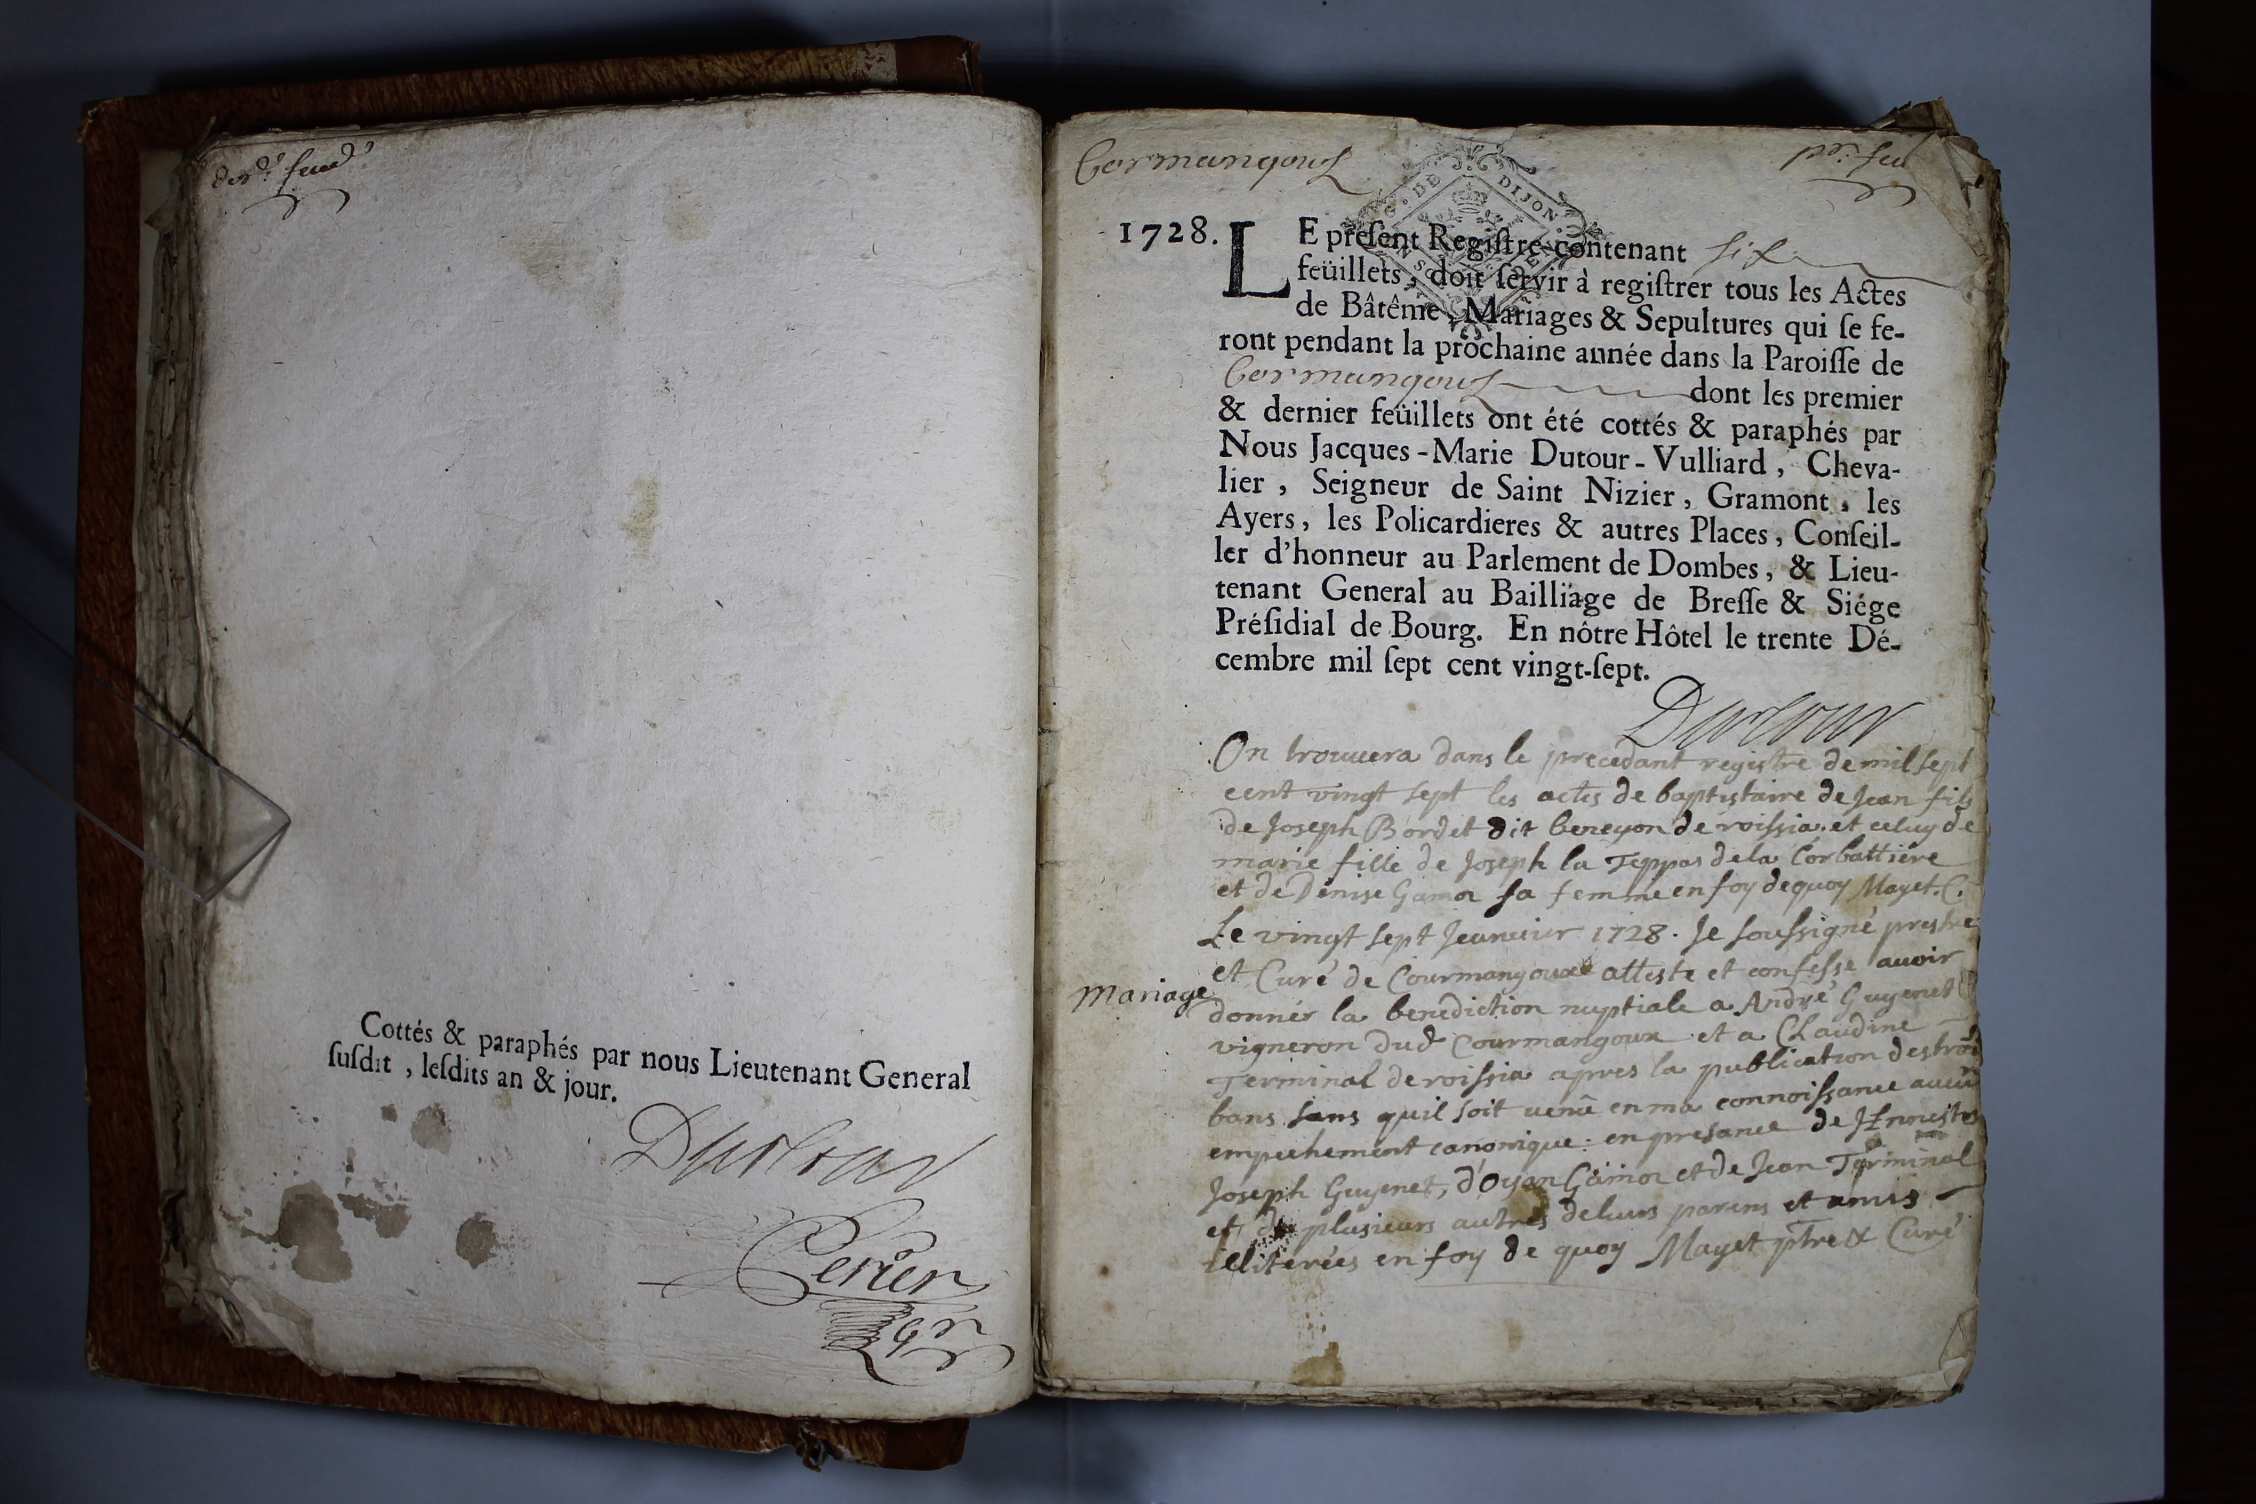 Cottés & paraphés par nous Lieutenant General
ſuſdit, leſdits an & jour.
Dutour
Perier
Cormangoux
G. DE DIJON
1728.
LE preſent Regiſtre contenant six
feüillets, doit ſervir à regiſtrer tous les Actes
de Bâtême, Mariages & Sepultures qui ſe fe-
ront pendant la prochaine année dans la Paroiſſe de
Cormangoux dont les premier
& dernier feüillets ont été cottés & paraphés par
Nous Jacques-Marie Dutour-Vulliard, Cheva-
lier, Seigneur de Saint Nizier, Gramont, les
Ayers, les Policardieres & autres Places, Conſeil-
ler d'honneur au Parlement de Dombes, & Lieu-
tenant General au Bailliäge de Breſſe & Siége
Préſidial de Bourg. En nôtre Hôtel le trente Dé-
cembre mil ſept cent vingt-ſept.
Dutour
On trouuera dans le precedant registre de mil sept
cent vingt sept les actes de baptistaire de Jean fils
de Joseph Bordet dit bereyon de roissia. et celuy de
marie fille de Joseph la Teppas de la Corbattiere
et de Denise Gamor sa femme en foy de quoy Mayet. C.
Le vingt sept Jeanuier 1728. Je soussigné prestre
et Curé de Courmangoux atteste et confesse auoir
Mariage
donnér la benediction nuptiale a André Guyenet
vigneron dud Courmangoux et a Claudine
Terminal de roissia apres la publication des trois
bans sans quil soit uenû en ma connoissance aucun
empechement canonique: en presance de
Joseph Guyenet, d'Oyan Gamor et de Jean Terminal
et de plusieurs autres de leurs parens et amis
illiterées en foy de quoy Mayet ptre & Curé